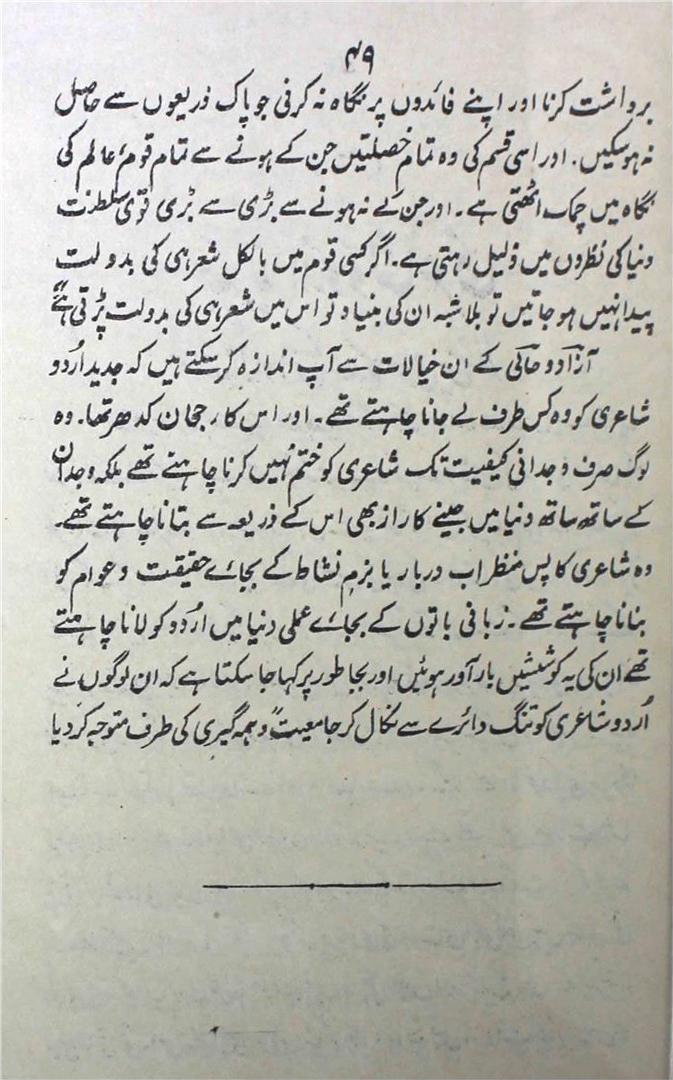 ۴۹
برداشت کرنا اور اپنے فائدوں پر نگاہ نہ کرنی جو پاک ذریعوں سے حاصل
نہ ہوسکیں. اور اسی قسم کی وہ تمام خصلتیں جن کے ہونے سے تمام قوم عالم کی
نگاہ میں چمک اٹھتی ہے۔ اور جن کے نہ ہونے سے بڑی سے بڑی قوی سلطنت
دنیا کی نظروں میں ذلیل رہتی ہے۔ اگر کسی قوم میں بالکل شعر ہی کی بدولت
پیدا نہیں ہوجاتیں تو بلا شبہ ان کی بنیاد تو اس میں شعر ہی کی بدولت پڑتی ہے"
آزاد و حالی کے ان خیالات سے آپ اندازہ کرسکتے ہیں کہ جدید اُردو
شاعری کو وہ کس طرف لے جانا چاہتے تھے۔ اور اس کا رجحان کدھر تھا۔ وہ
لوگ صرف وجدانی کیفیت تک شاعری کو ختم نہیں کرنا چاہتے تھے بلکہ وجدان
کے ساتھ ساتھ دنیا میں جینے کا راز بھی اس کے ذریعہ سے بتانا چاہتے تھے۔
وہ شاعری کا پس منظر اب دربار یا بزمِ نشاط کے بجائے حقیقت و عوام کو
بنانا چاہتے تھے۔ زبانی باتوں کے بجائے عملی دنیا میں اُردو کو لانا چاہتے
تھے ان کی یہ کوششیں بار آور ہوئیں اور بجا طور پر کہا جا سکتا ہے کہ ان لوگوں نے
اُردو شاعری کو تنگ دائرے سے نکال کر جامعیت و ہمہ گیری کی طرف متوجہ کر دیا